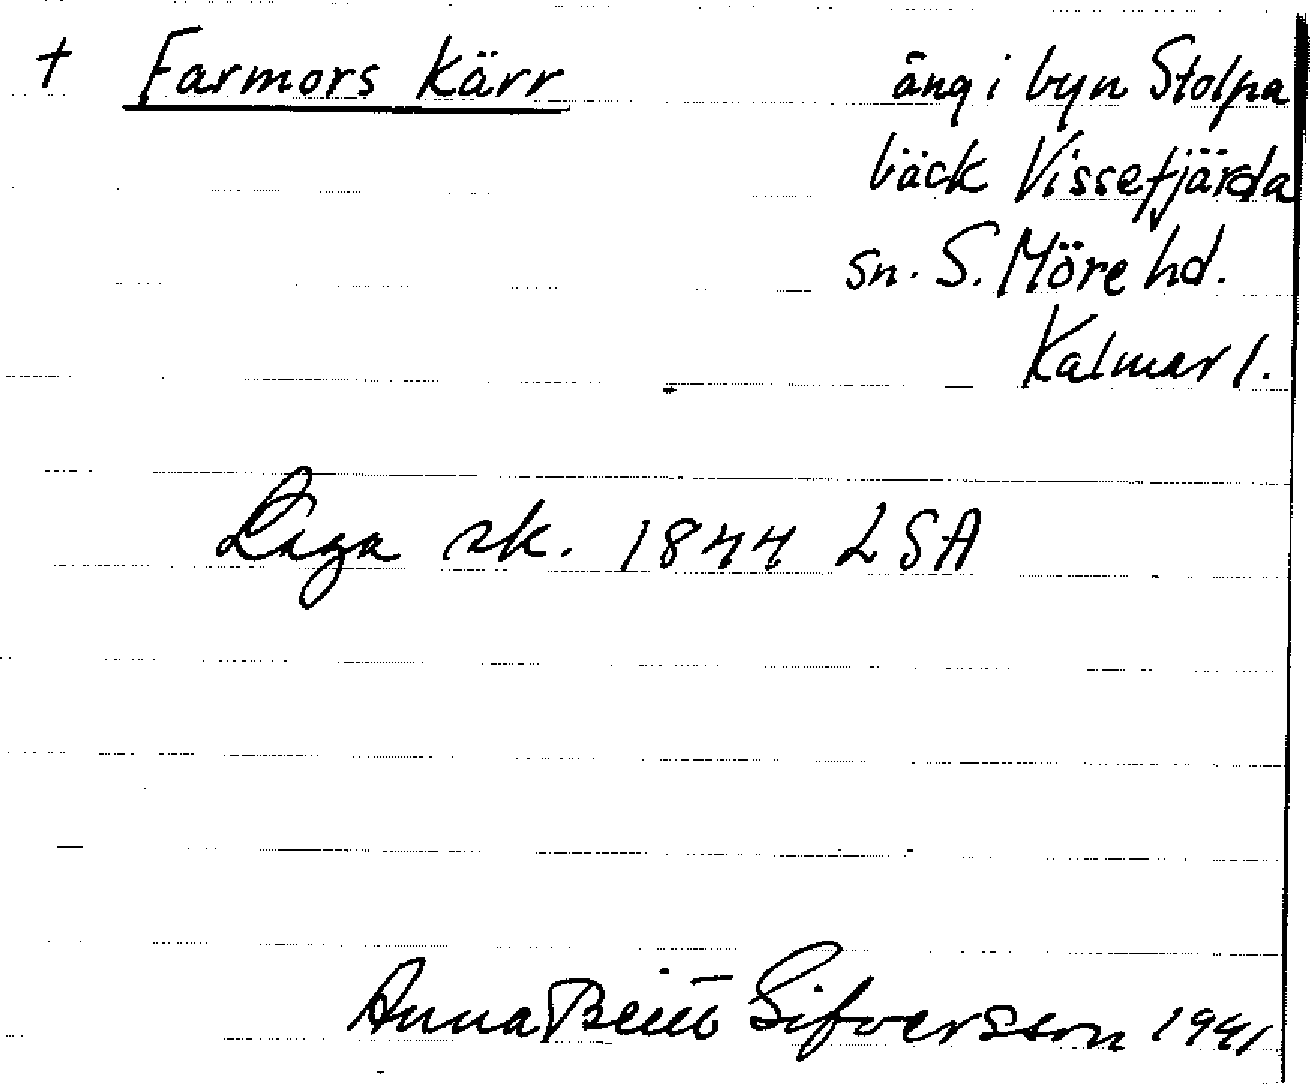 † Farmors Kärr
äng i byn Stolpa
bäck Vissefjärda
sn. S. Möre hd.
Kalmar l.
Laga sk. 1844 LSA
Anna Britt Sifversson 1941